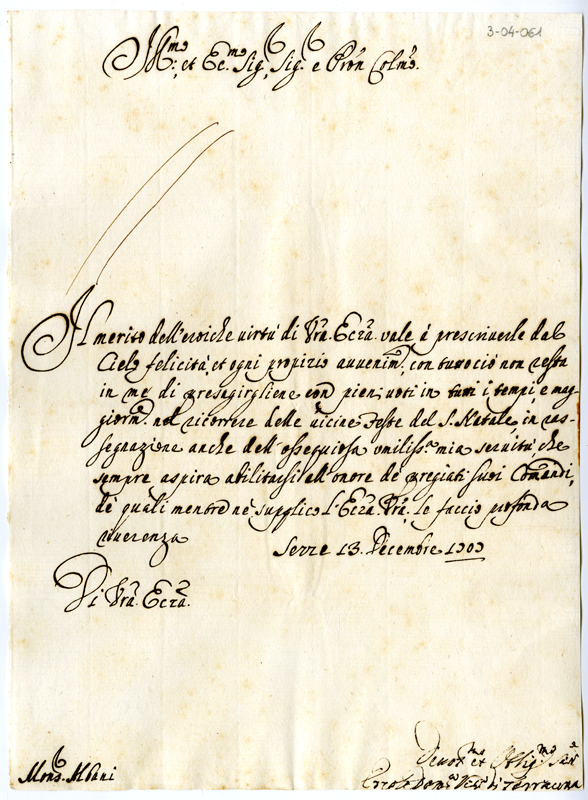 3-04-061
Ill.mo et Ec.mo Sig, Sig. e Pron Colmo.
Il merito dell'eroiche virtù di Vra. Ecza. vale à prescriverle dal
Cielo felicità, et ogni propizio avvenim.to, con tutto ciò non resta
in me di presagirgliene con pieni voti in tutti i tempi e mag-
giorm.te nel ricorrere delle vicine Feste del S. Natale, in ras-
segnazione anche dell'ossequiosa umiliss.a mia servitù che
sempre aspira abilitarsi all'onore de pregiati suoi Comandi,
de quali mentre nè supplico l'Ecza. Vra. le faccio profonda
riverenza
Sezze 13. Dècembre 1707
Di Vra. Ecza.
Mons. Albani
Devot.mo et Oblig.mo
Ercole Dom.co Vesc. di Terracina